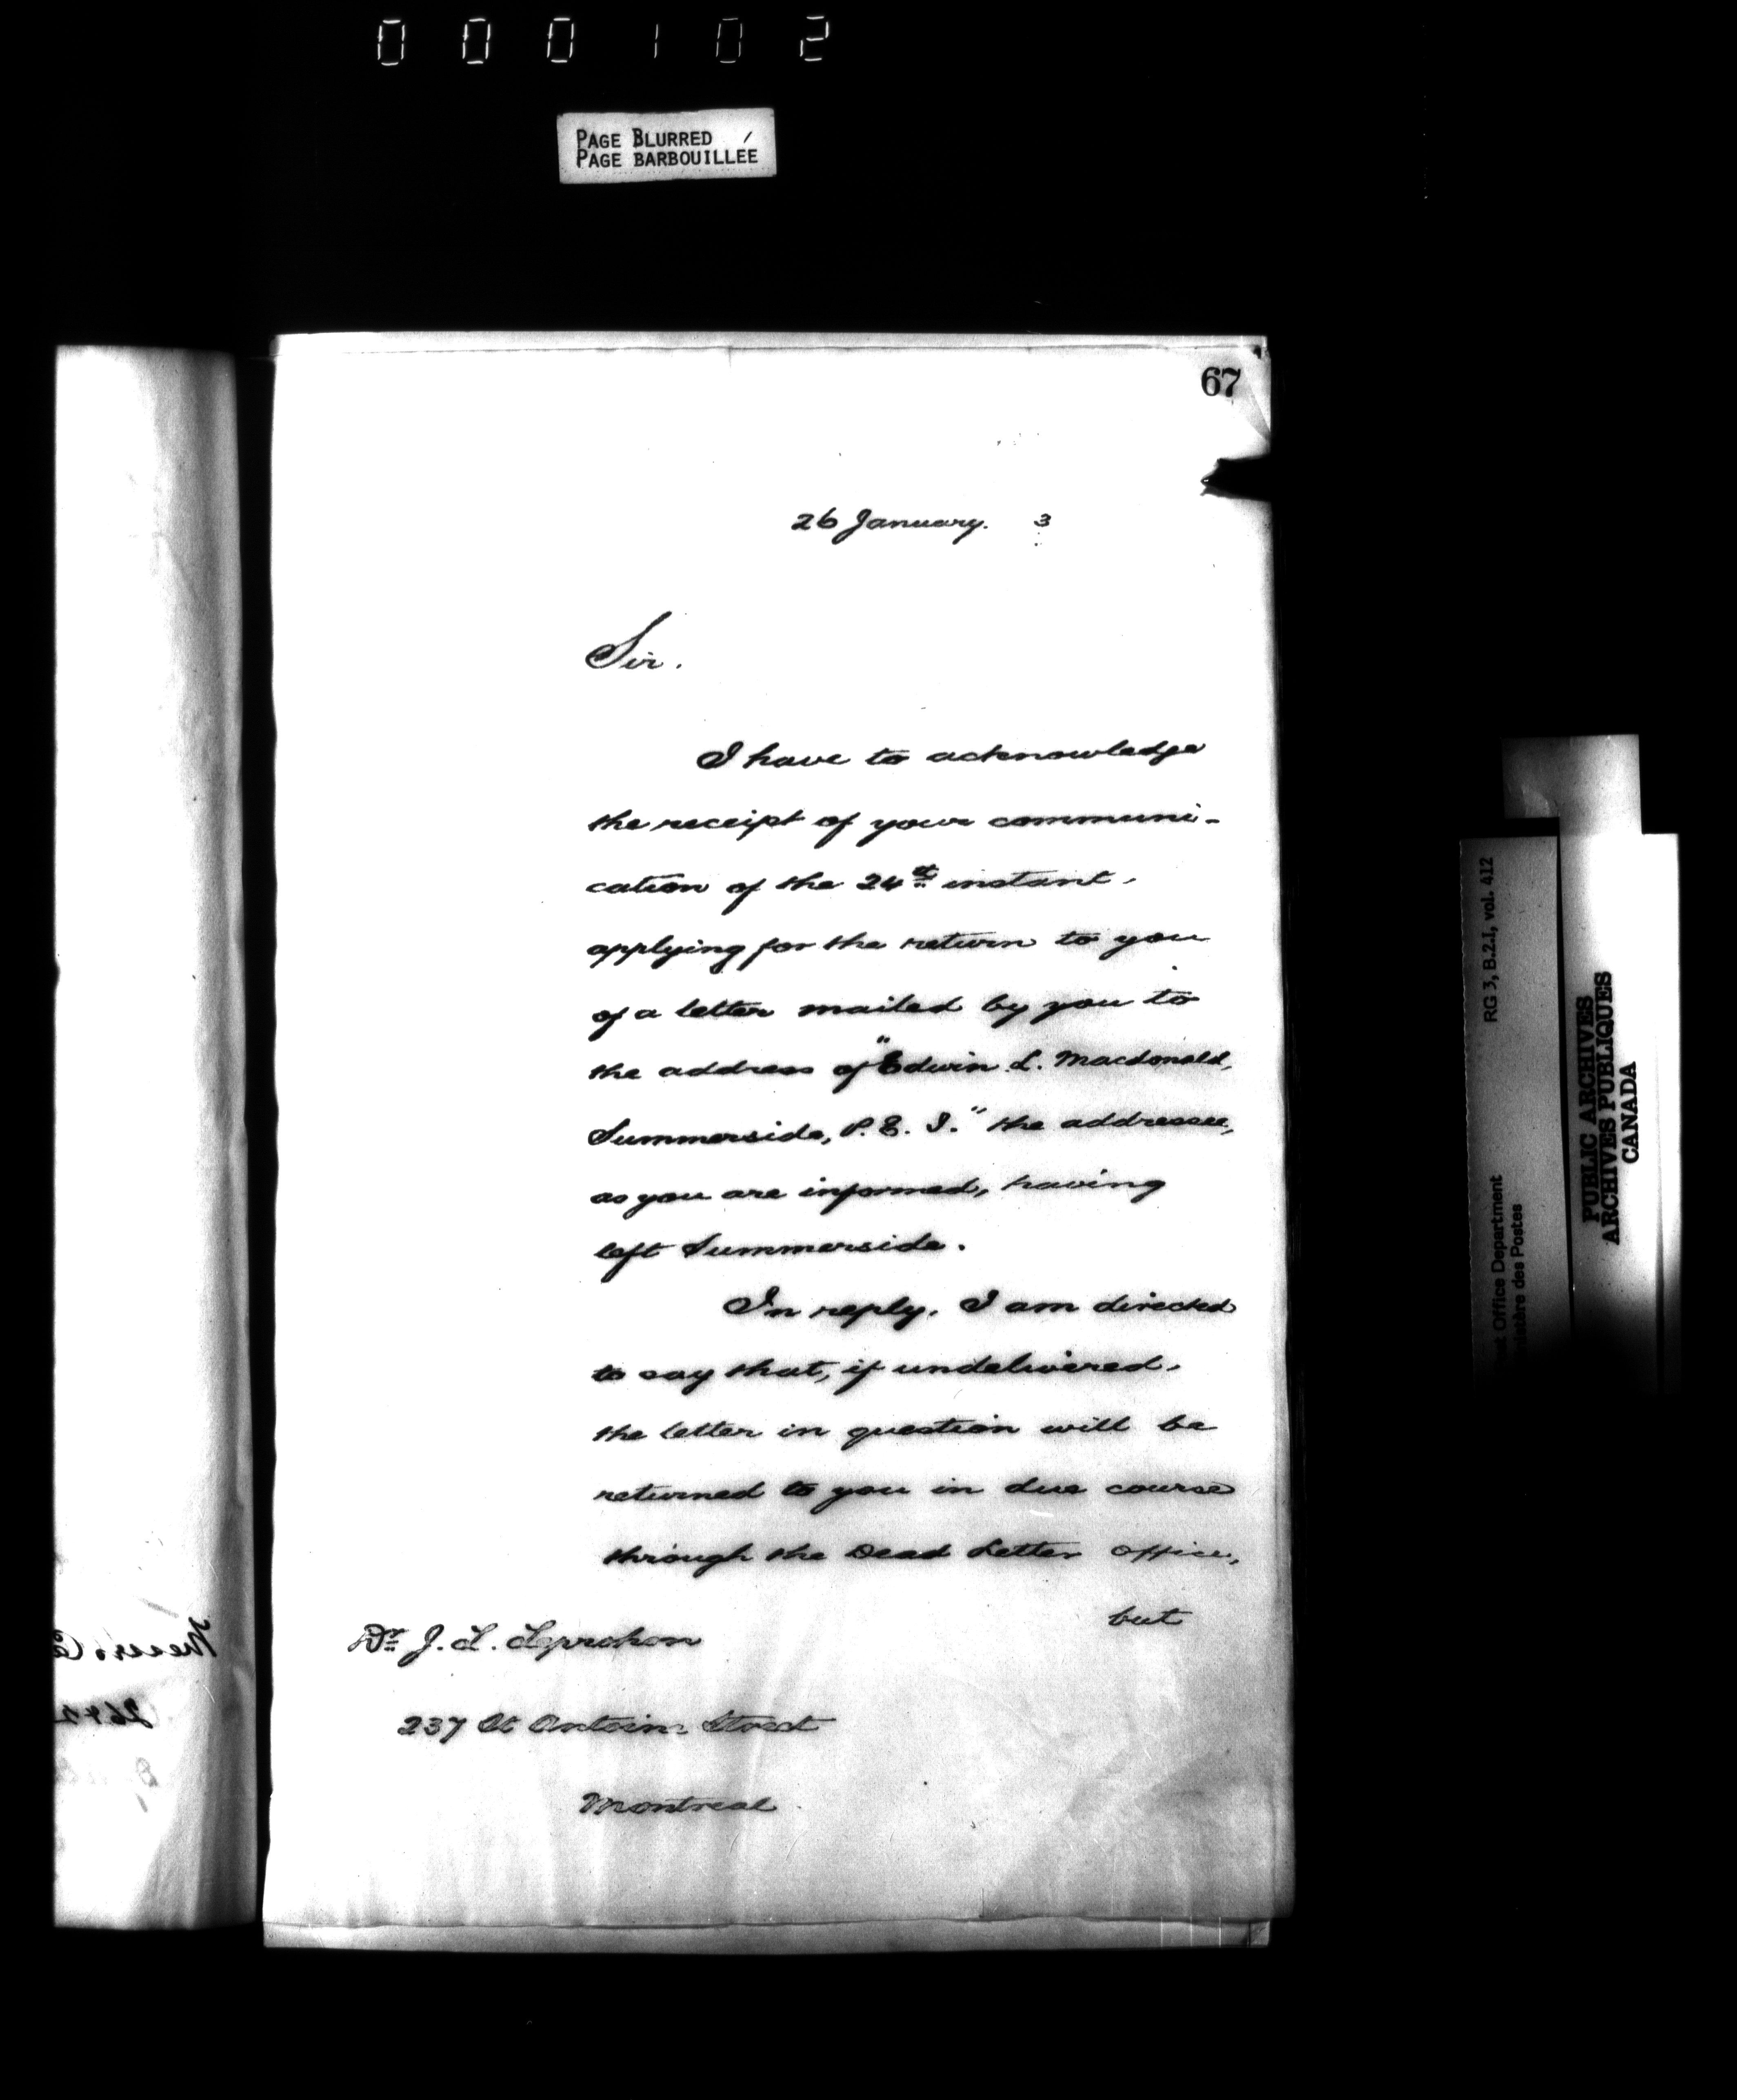 000102
PAGE BLURRED
PAGE BARBOUILLÉE
67
26 January. 3
Sir.
I have to acknowledge
the receipt of your communi-
cation of the 24th instant,
applying for the return to you
of a letter mailed by you to
the address of "Edwin L. Macdonald,
Summerside, P. E. I." the addressee,
as you are informed, having
left Summerside.
In reply, I am directed
to say that, if undelivered,
the letter in question will be
returned to you in due course
through the Dead Letter Office,
but
Dr J. L. Leprohon
237 St Antoine Street
Montreal
RG 3, B.2.1, vol. 412
t Office Department
istère des Postes
PUBLIC ARCHIVES
ARCHIVES PUBLIQUES
CANADA